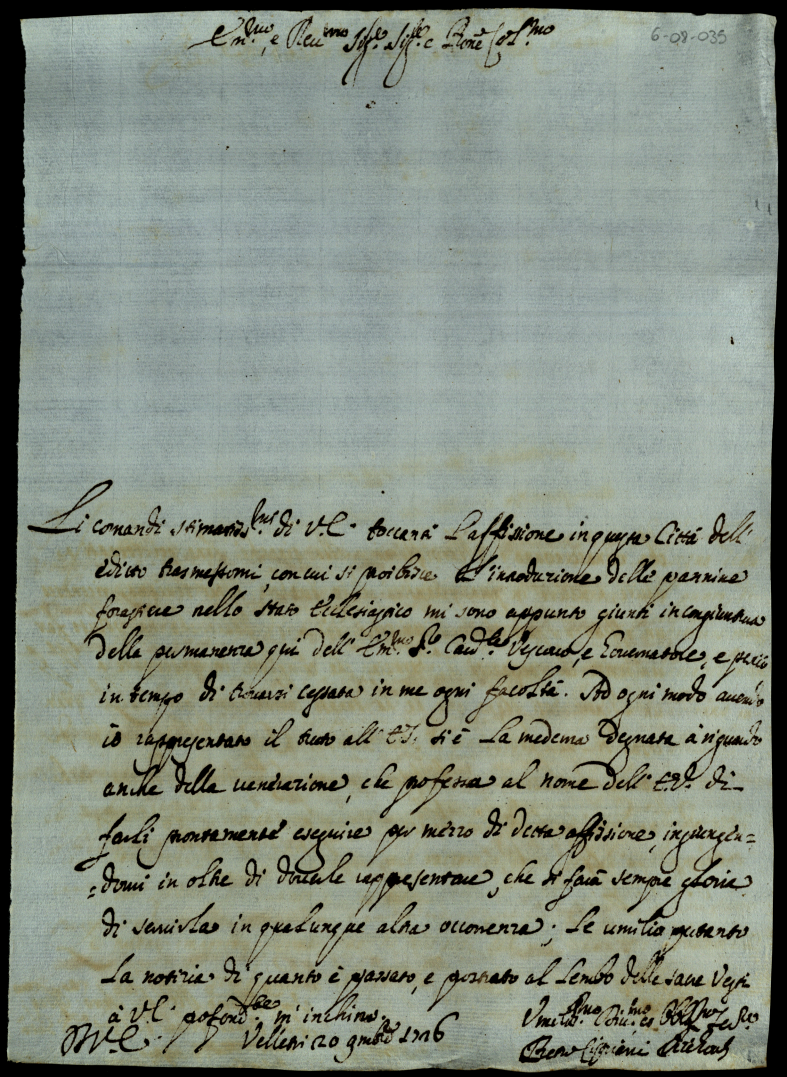 6-08-035
Em.mo, e Rev.mo Sig.re Sig.re e Pron.e Col.mo
Li comandi stimatiss.mi di V.E. toccanti l'affissione in questa Città dell'
editto trasmessomi, con cui si proibisce l'introduzione delle pannine
forastiere nello Stato Ecclesiastico mi sono appunto giunti in congiuntura
della permanenza qui dell' Em.mo S.re Card.le Vescovo, e Governatore, e perciò
in tempo di trovarsi cessata in me ogni facoltà. Ad ogni modo avendo
io rappresentato il tutto all' E.S. si è la medema degnata à riguardo
anche della venerazione, che professa al nome dell' E.V. di
farli prontamente eseguire per mezzo di detta affissione, ingiungen=
=domi in oltre di doverle rappresentare, che si farà sempre gloria
di servirla in qualunque altra occorrenza; Le umilio pertanto
la notizia di quanto è passato, e prostrato al lembo delle sacre Vesti
à V.E. profond.te m'inchino.
Velletri 20 9mbre 1726
Umiliss.mo Div.mo es Obblig.mo Ser.re
Pietro Cipriani